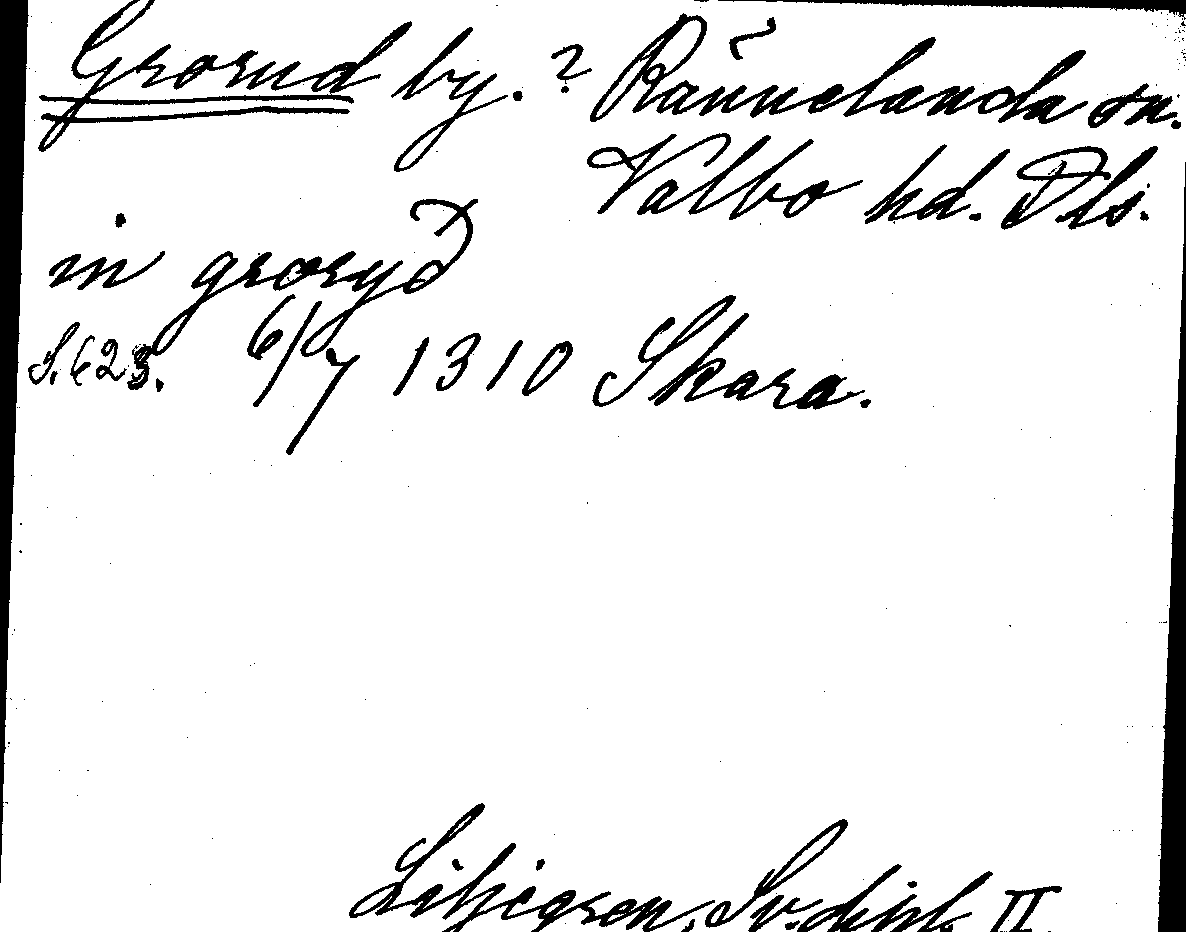 Grorud by. ? Rännelanda sn.
Valbo hd. Dls.
in groryð
S. 623. 6/7 1310 Skara.
Liljegren, Sv. dipl. II